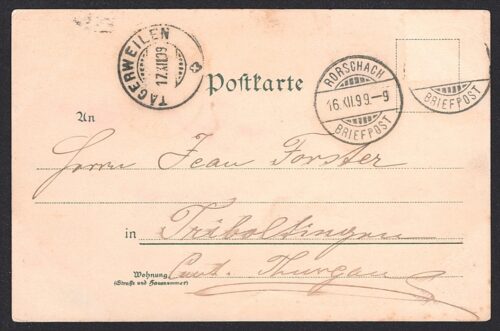 TÄGERWEILEN
17.XII.99
Postkarte
RORSCHACH
16.XII.99.-9
BRIEFPOST
BRIEFPOST
An
Herrn Jean Forster
in
Triboltingen
Wohnung
(Straße und Hausnummer)
Cant. Thurgau